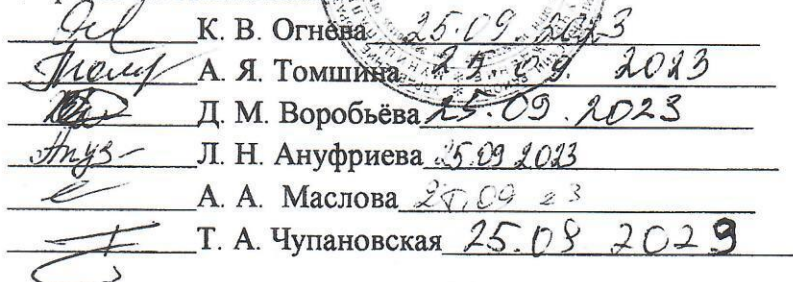 К. В. Огнева 25.09.2023
А. Я. Томшина 25.09.2023
Д. М. Воробьёва 25.09.2023
Л. Н. Ануфриева 25.09 2023
А. А. Маслова 25.09 23
Т. А. Чупановская 25.09 2023